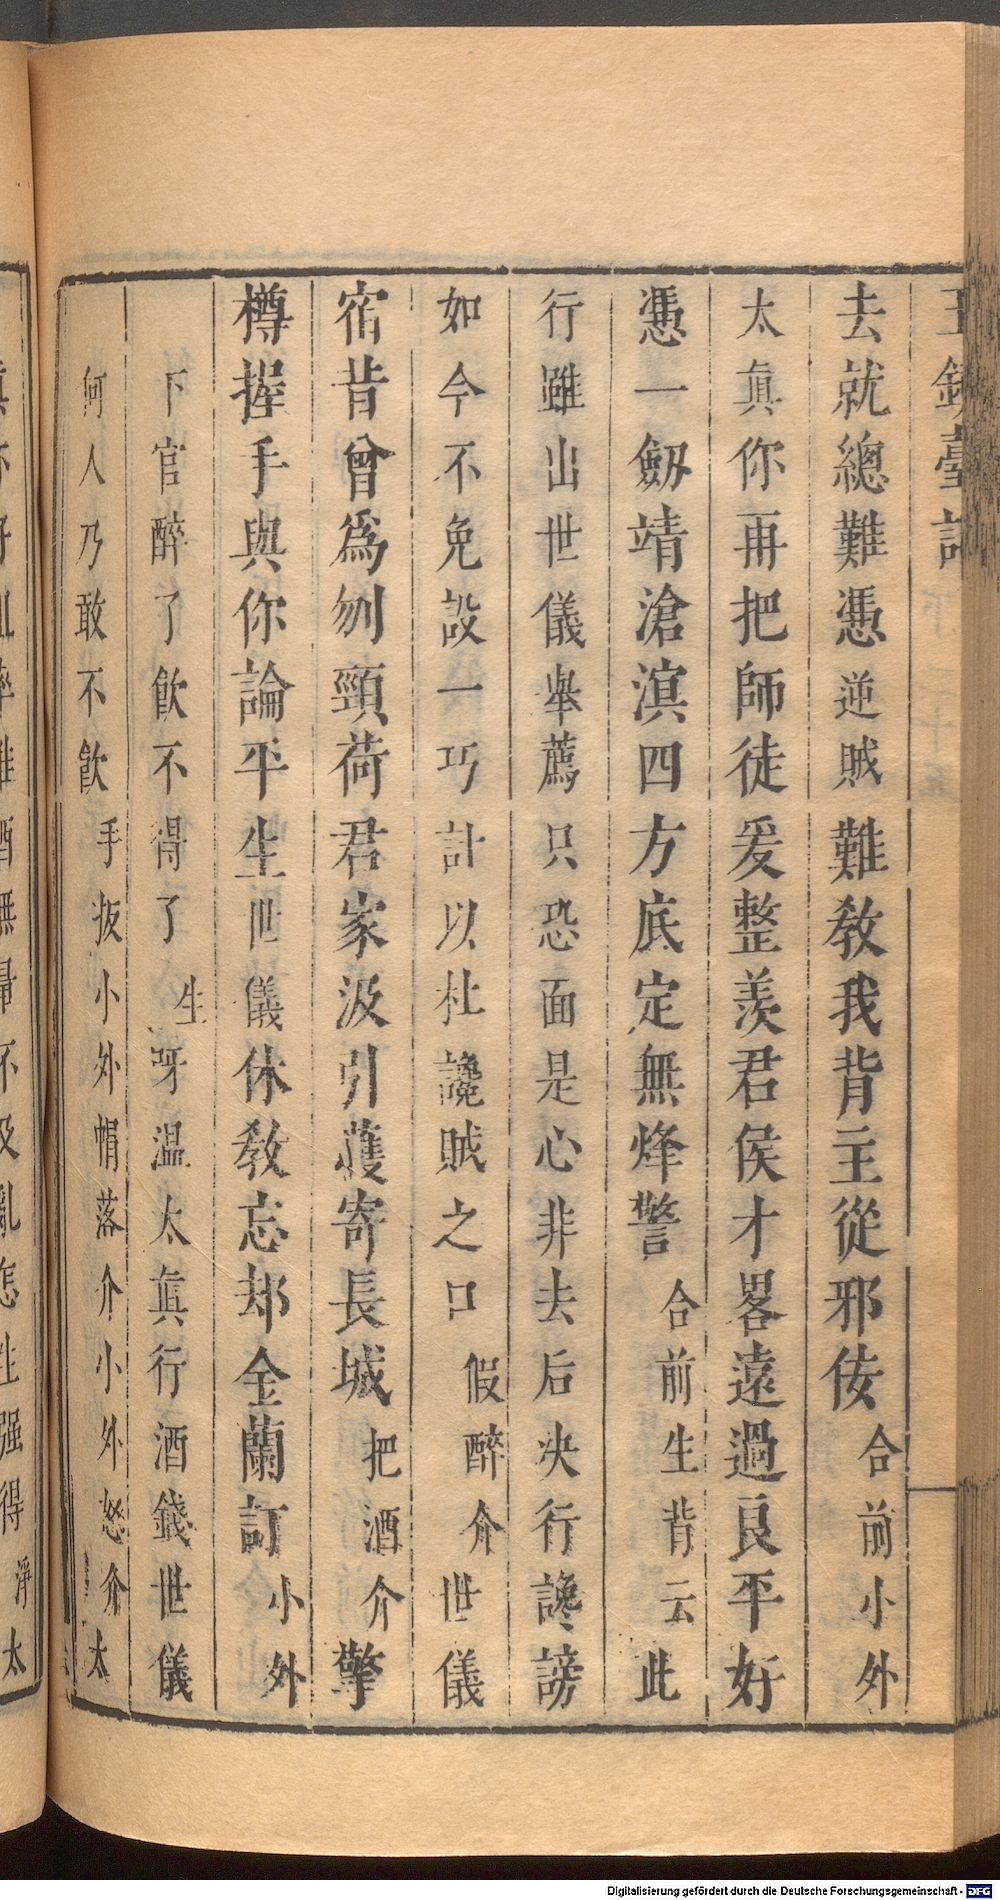 去就總難憑逆賊難教我背主從邪佞合前小外
太眞你再把師徒爰整羨君侯才畧遠過良平好
憑一劔靖滄溟四方底定無烽警合前生背云此
行雖出世儀舉薦只恐面是心非去后决行讒謗
如今不免設一巧計以杜讒賊之口假醉介世儀
宿昔曾爲刎頸荷君家汲引蔭寄長城把酒介擎
樽握手與你論平生世儀休教忘却金蘭訂小外
下官醉了飮不得了生呀溫太眞行酒錢世儀
何人乃敢不飮手扳小外帽落介小外怒介太
Digitalisierung gefördert durch die Deutsche Forschungsgemeinschaft - DFG